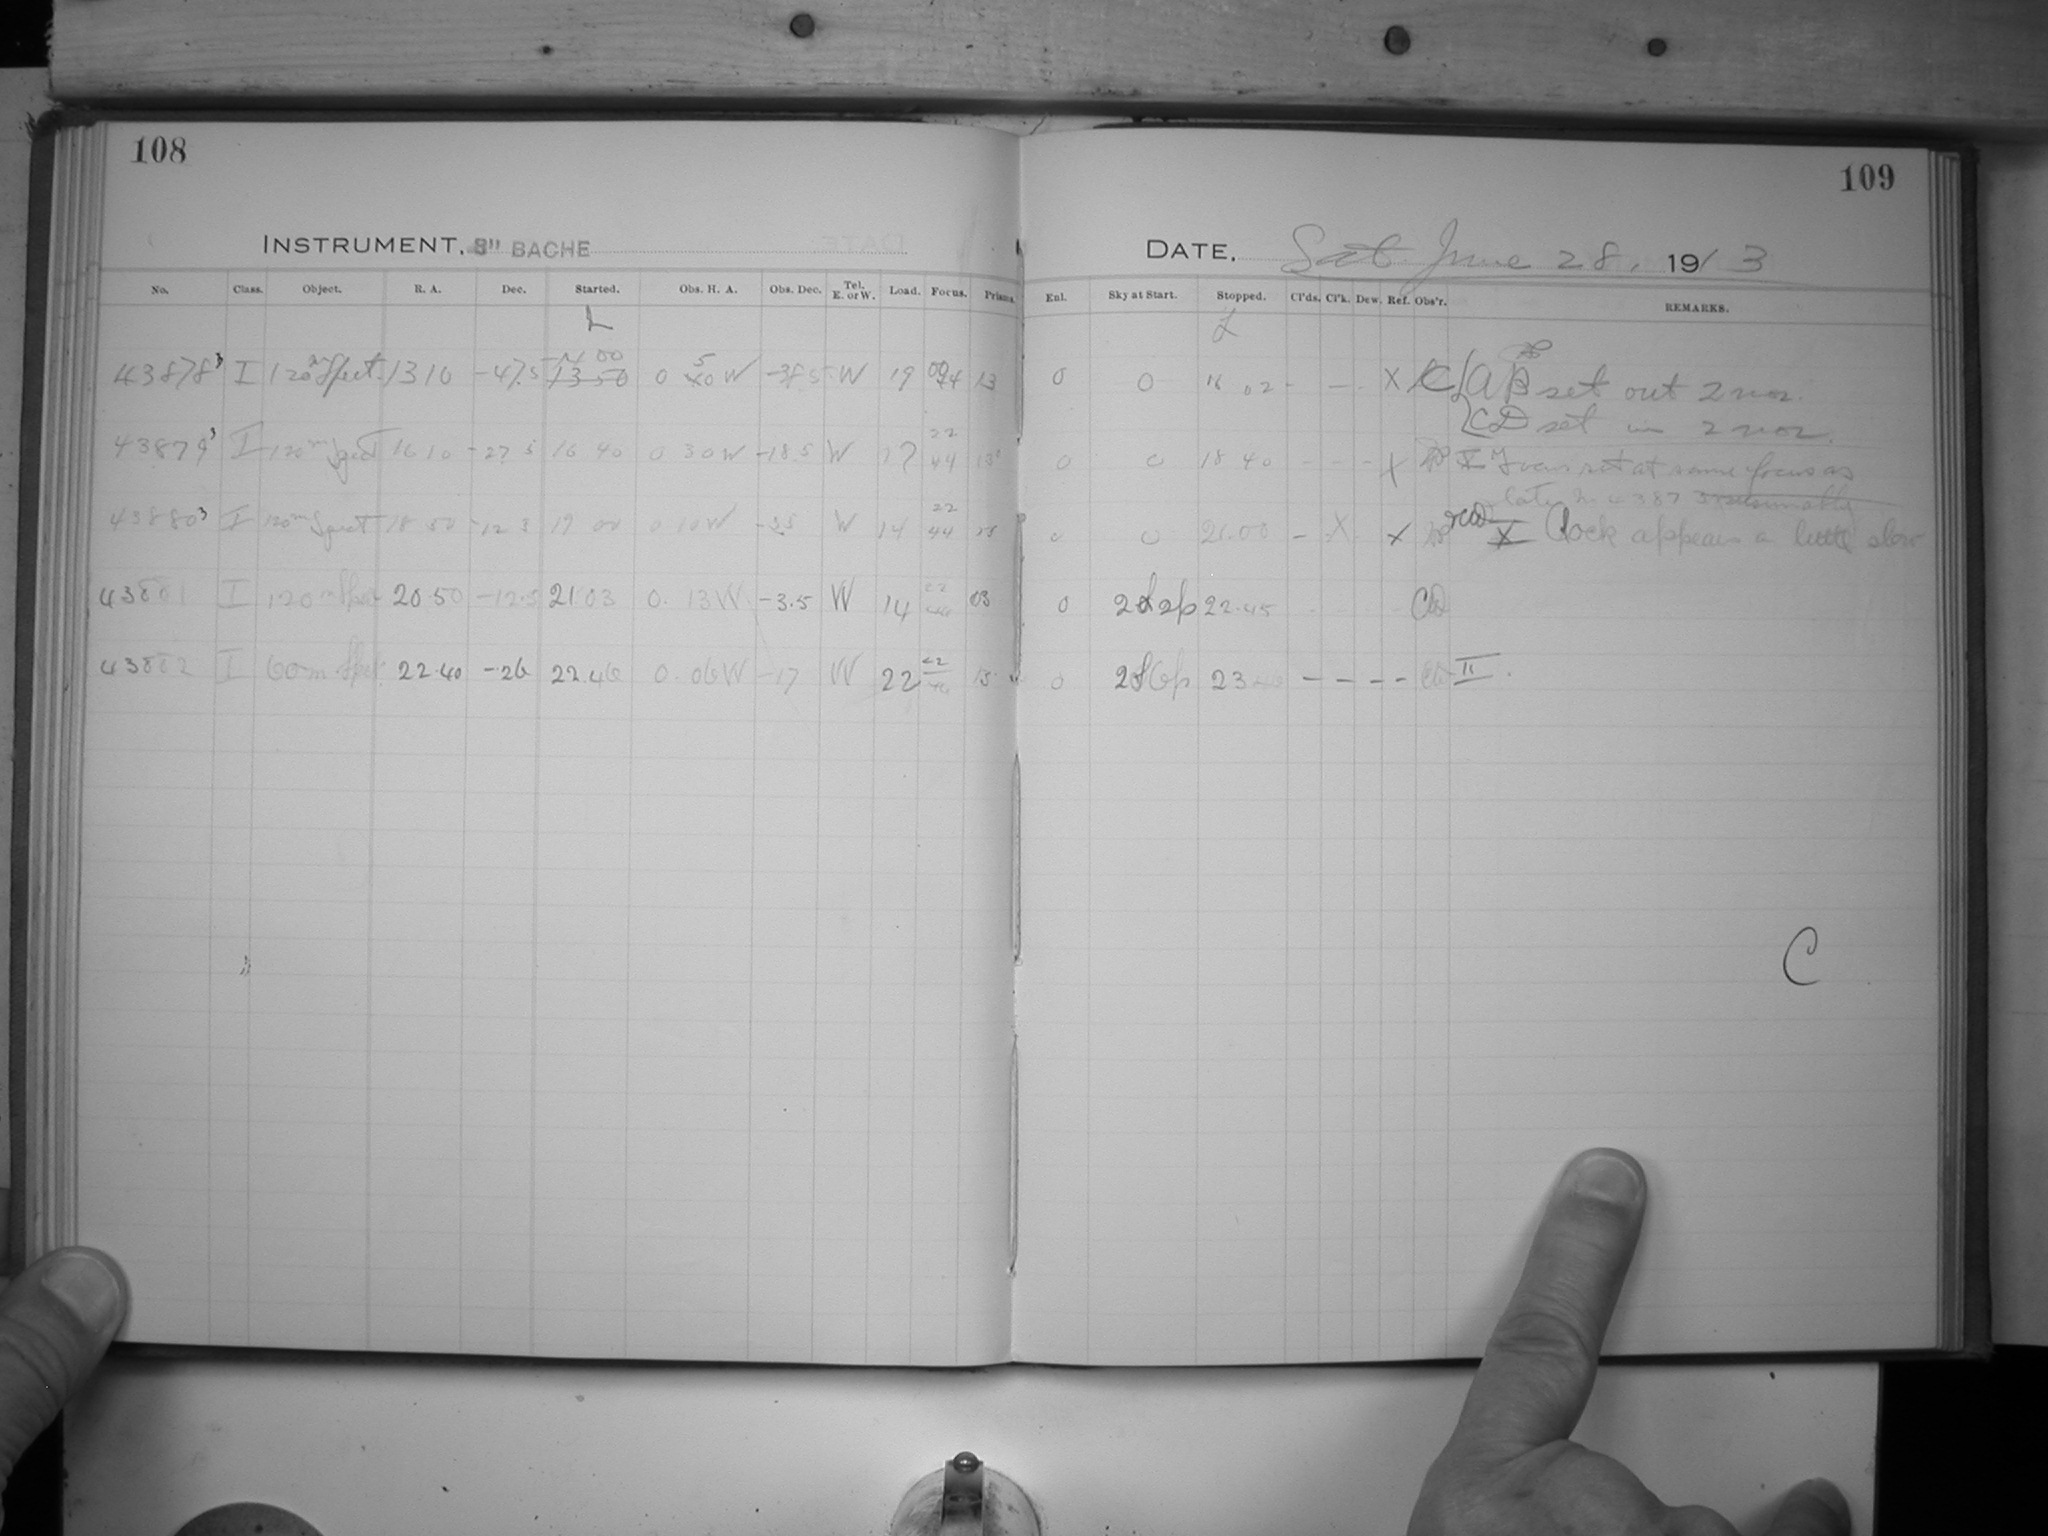 108
109
INSTRUMENT, 8" BACHE
DATE, Sat. June 28, 1913
No. Class. Object. R. A. Dec. Started. Obs. H. A. Obs. Dec. Tel. E. or W. Load. Focus. Prisms. Enl. Sky at Start. Stopped. Cl'ds. Cl'k. Dew. Ref. Obs'r. REMARKS.
14 00
43878³ I 120m Spect. 13 10 -47.5 13 50 0 W W 19 44 13 0 0 16 02 - - - X set out 2 nor.
CD set in 2 nor.
22
43879³ I 120m Spect 16 10 -27 5 16 40 0 30 W -18.5 W 17 44 0 0 18 40 - - - X set at same focus as
22
43880³ I 120m Spect 18 50 -12 5 19 00 0 10 W W 14 44 0 0 21.00 - X X X Clock appears a little slow
22
43881 I 120m Spect 20 50 -12.5 21.03 0. 13 W -3.5 W 14 44 03 0 22.45 CD
22
43882 I 60m. Spect. 22.40 -26 22.46 0. 06 W -17 W 22 13 0 23 - - - - CD II.
C